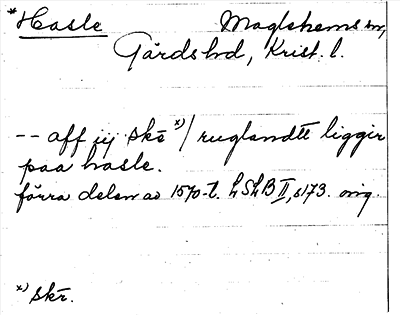 *Hasle Maglehems sn,
Gärds hd, Krist. l.
-- aff iij skē x) / ruglandtt liggir
paa hasle.
förra delen av 1570-t. LSLB II, s 173. orig.
x) skr.